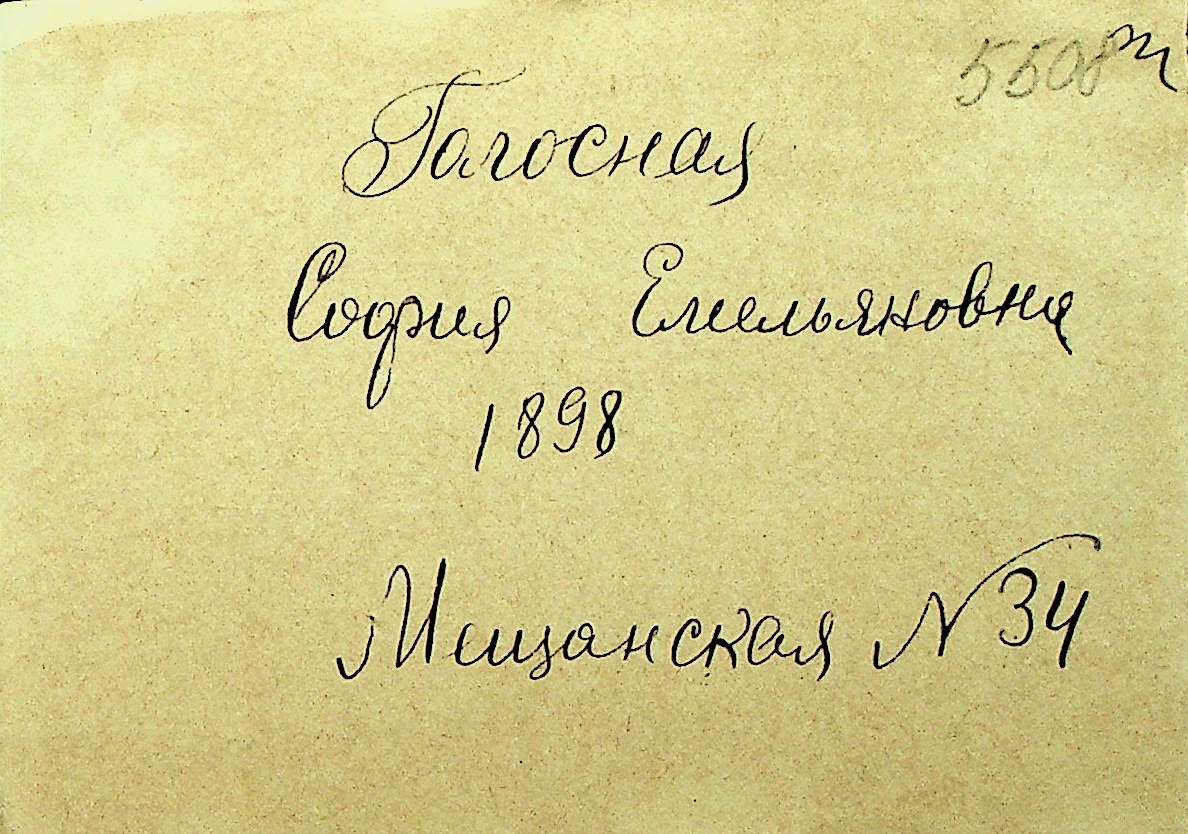 5508
Голосная
София Емельяновна
1898
Мещанская N 34